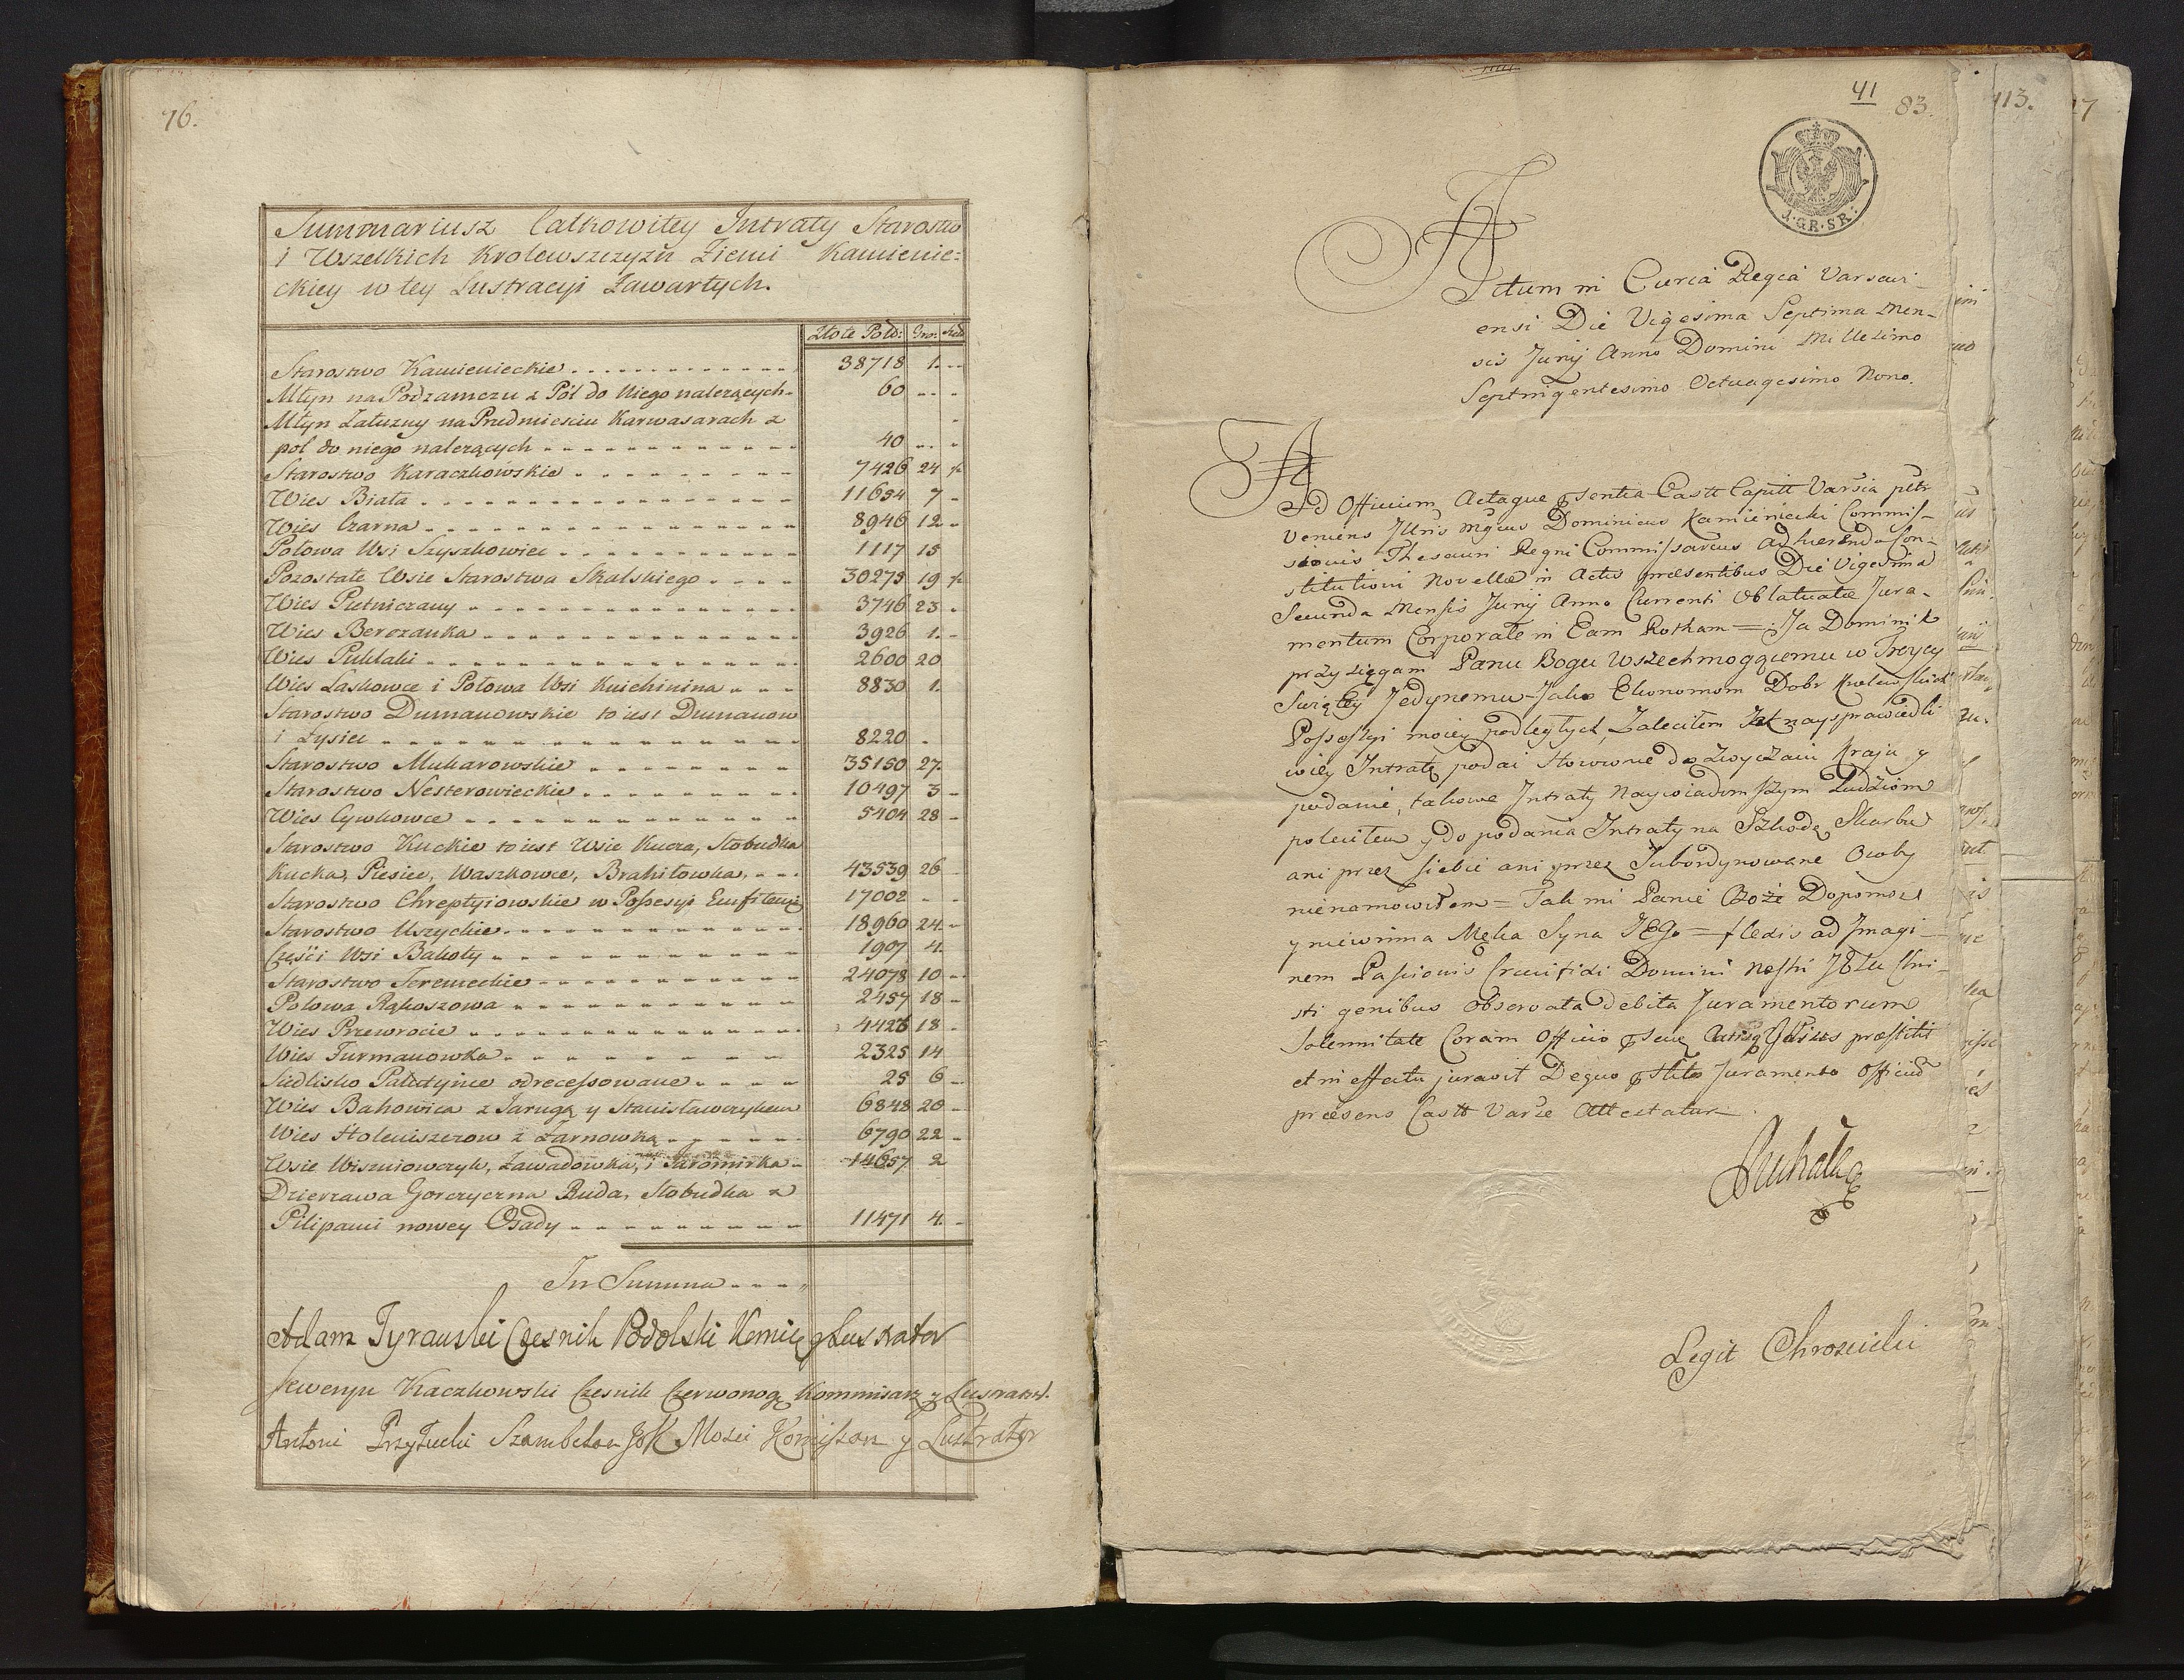 76.
Summariusz Całkowitey Intraty Starostw
i Wszelkich Krolewszczyzn Ziemi Kamienie=
ckiey w tey Lustracyi Zawartych.
Złote Pols: Gro:
Starostwo Kamienieckie 38718 1.
Młyn na Podzamczu z Pól do Niego należących 60
Młyn Załuzny na Predmiesciu Karwasarach z
pol do niego należących 40
Starostwo Karaczkowskie 7426 24
Wies Biała 11654 7
Wies Czarna 8946 12
Połowa Wsi Szyszkowiec 1117 15
Pozostałe Wsie Starostwa Skalskiego 30275 19
Wies Pietniczany 3746 23
Wies Berezanka 3926 1.
Wies Puklaki 2600 20
Wies Laskowce i Połowa Wsi Kniehinina 8830 1.
Starostwo Dumanowskie to iest Dumanow
i Zysiec 8220
Starostwo Mukarowskie 35150 27.
Starostwo Nesterowieckie 10497 3
Wies Cywkowce 5404 28
Starostwo Kuckie to iest Wsie Kucza, Słobudka
Kucka, Piesiec, Waszkowce, Brahiłowka, 43539 26
Starostwo Chreptyiowskie w Possesyi Emfiteuzi 17002
Starostwo Uszyckie 18960 24
Części Wsi Bakoty 1907 4.
Starostwo Teremeckie 24078 10
Połowa Rąkoszowa 2457 18
Wies Przewrocie 4426 18
Wies Furmanowka 2325 14
Siedlisko Paładyjne odrecessowane 25 6
Wies Bahowica z Jarugą y Stanisławczykiem 6848 20
Wies Hołeniszczow z Zarnowką 6790 22
Wsie Wiszniowczyk, Zawadowka, i Jaromirka 14657 2
Dzierzawa Gorczyczna Buda, Słobudka z
Pilipami nowey Osady 11471 4.
In Summa
Adam Tyrawski Czesnik Podolski y Lustrator
Seweryn Kaczkowski Czesnik Czerwonog Kommisarz y Lustrator.
Antoni Szambelan JoK Mosci y Lustrator
41
83.
113.
1. GR. SR:
Actum in Curia Regia Varsavi-
ensi Die Vigesima Septima Men-
sis Junij Anno Domini Millesimo
Septingentesimo Octuagesimo Nono.
Ad Officium Actaque
veniens Dominicus Kamieniecki Commis-
sionis Thesauri Regni Commissarius Adhaerendo Con-
stitutioni Novellae in Actis praesentibus Die Vigesima
Secunda Mensis Junij Anno Currenti Oblatuatae Jura-
mentum Corporale in Eam Rotham = Ja Dominik
przysięgam Panu Bogu Wszechmogącemu w Troycy
Swiętey Jedynemu Jako Ekonomom Dobr Krolewskich
Possessyi moiey podległych, Zaleciłem Jak nayspráwiedli
wiey Intratę podać stowownie do zwyczaiu Kraju y
podanie, takowe Intraty Naywiadomszym Ludziom
poleciłem y do podania Intraty na Szkodę Skarbu
ani przez siebie ani przez Subordynowane Osoby
nienamowiłem = Tak mi Panie Boże Dopomoż
y niewinna Męka Syna JEGo = flexis ad Imagi-
nem Passionis Crucifixi Domini Nostri JEsu Chri-
sti genibus observata debita Juramentorum
Solennitate Coram Officio praestitit
et in effectu juravit De quo Juramento Officiū
praesens Castr Varse Attestatur
Legit Chroscicki